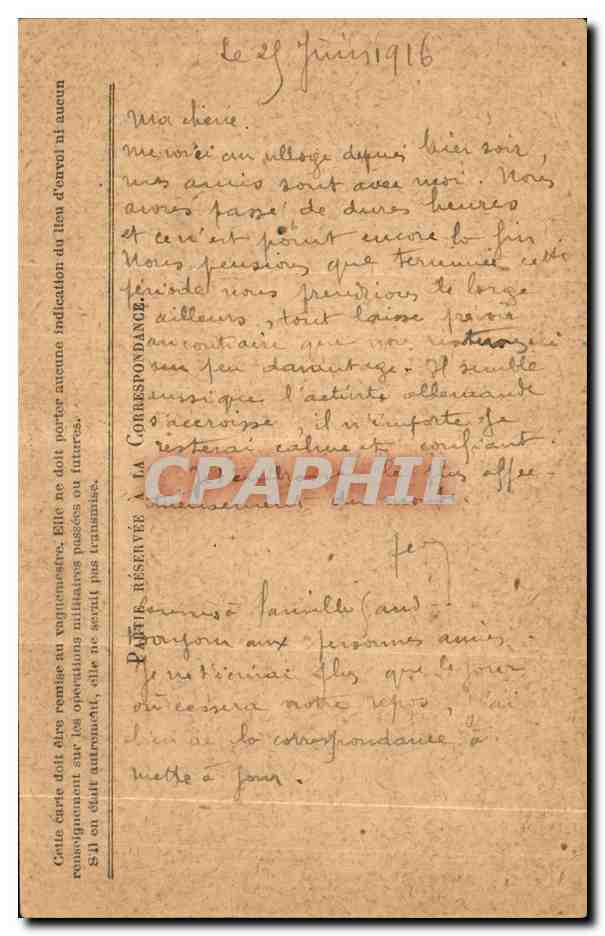 Le 25 Juin 1916
Ma chérie.
Me voici au village depuis hier soir,
mes amis sont avec moi. Nous
avons passé de dures heures
et ce n'est point encore la fin
Nous pensions que terminée cette
période nous prendrions le large
ailleurs, tout laisse prévoir
au contraire que nous resterons ici
un peu davantage. Il semble
aussi que l'activité allemande
s'accroisse, il n'importe je
resterai calme et confiant.
Je le plus affec-
tueusement
à famille
bonjour aux personnes amies.
Je ne t'écrirai plus que le jour
où cessera notre repos, j'ai
bien de la correspondance à
mettre à jour.
PARTIE RÉSERVÉE A LA CORRESPONDANCE.
Cette carte doit être remise au vaguemestre. Elle ne doit porter aucune indication du lieu d'envoi ni aucun
renseignement sur les opérations militaires passées ou futures.
S'il en était autrement, elle ne serait pas transmise.
CPAPHIL